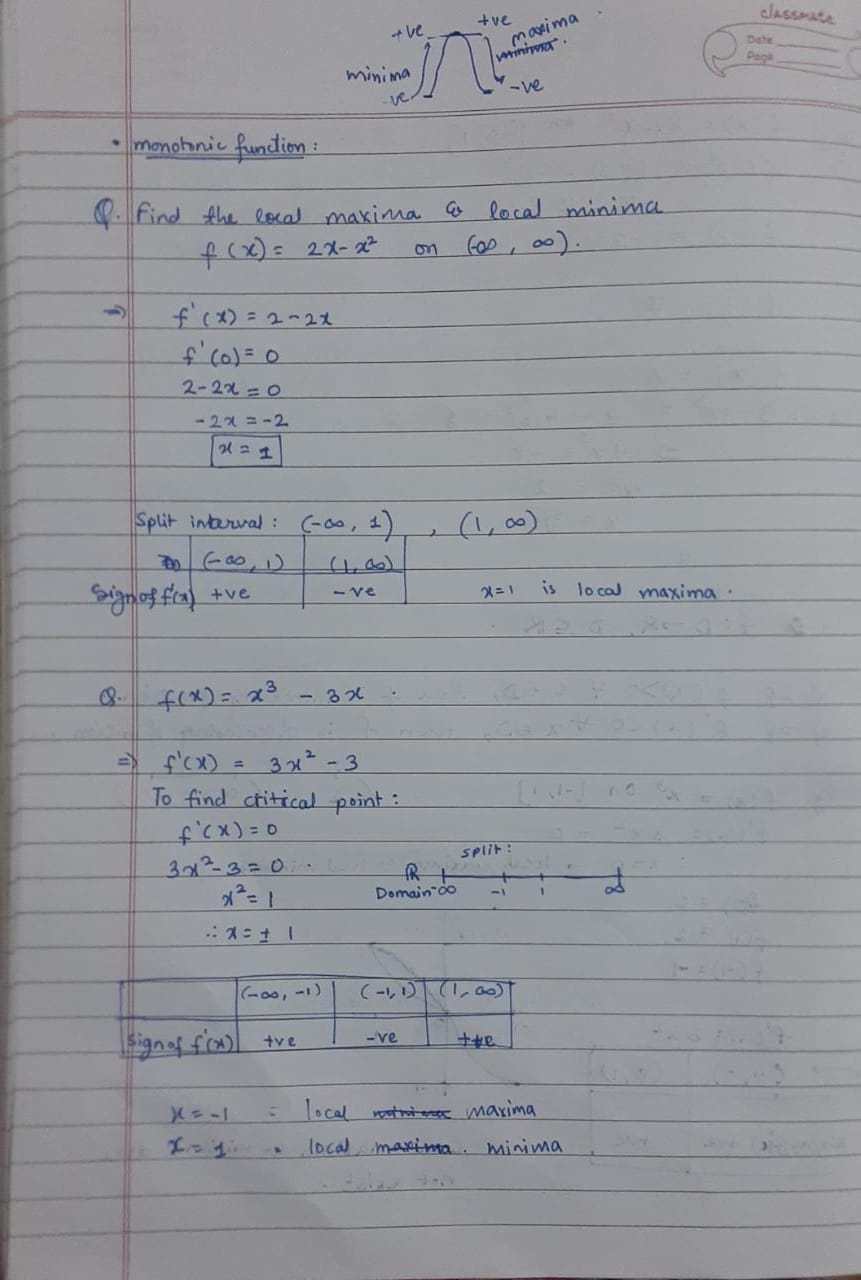 classmate
Date
Page
+ve +ve
maxima
minima.
minima
-ve -ve
• monotonic function :
Q. Find the local maxima & local minima
f(x) = 2x-x² on (-∞, ∞).
⇒ f'(x) = 2-2x
f'(0) = 0
2-2x = 0
-2x = -2
x = 1
Split interval : (-∞, 1) , (1, ∞)
(-∞, 1) (1, ∞)
Sign of f'(x) +ve -ve x=1 is local maxima.
Q. f(x) = x³ - 3x .
⇒ f'(x) = 3x² - 3
To find critical point :
f'(x) = 0
3x²-3 = 0 .
split :
ℝ
x² = 1
Domain -∞ -1 1 ∞
∴ x = ± 1
(-∞, -1) (-1, 1) (1, ∞)
Sign of f'(x) +ve -ve +ve
x = -1 = local minima maxima
x = 1 = local maxima. minima